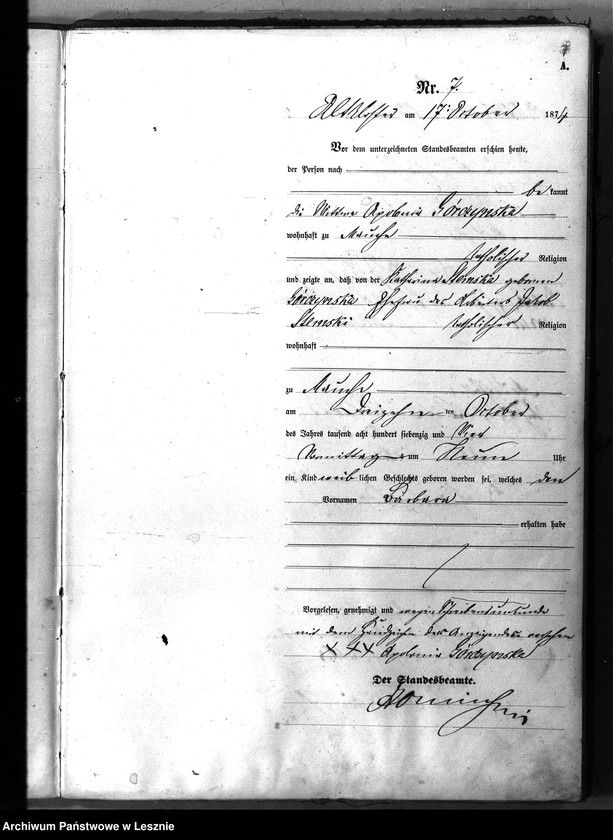 7
A.
Nr. 7.
Altkloster am 17. October 1874
Vor dem unterzeichneten Standesbeamten erschien heute,
der Person nach
bekannt
die Wittwe Apolonia Górczynska
wohnhaft zu Mauche
katholischer Religion
und zeigte an, daß von der Katharina Slemska geborenen
Górczynska Ehefrau des Jakob
Slemski katholischer Religion
wohnhaft
zu Mauche
am Dreizehn ten October
des Jahres tausend acht hundert siebenzig und Vier
Vormittag s um Neun Uhr
ein Kind weib lichen Geschlechts geboren worden sei, welches den
Vornamen Barbara
erhalten habe
Vorgelesen, genehmigt und wegen Schreibensunkunde
mit dem Handzeichen der Anzeigenden versehen
XXX Apolonia Górczynska
Der Standesbeamte.
Archiwum Państwowe w Lesznie